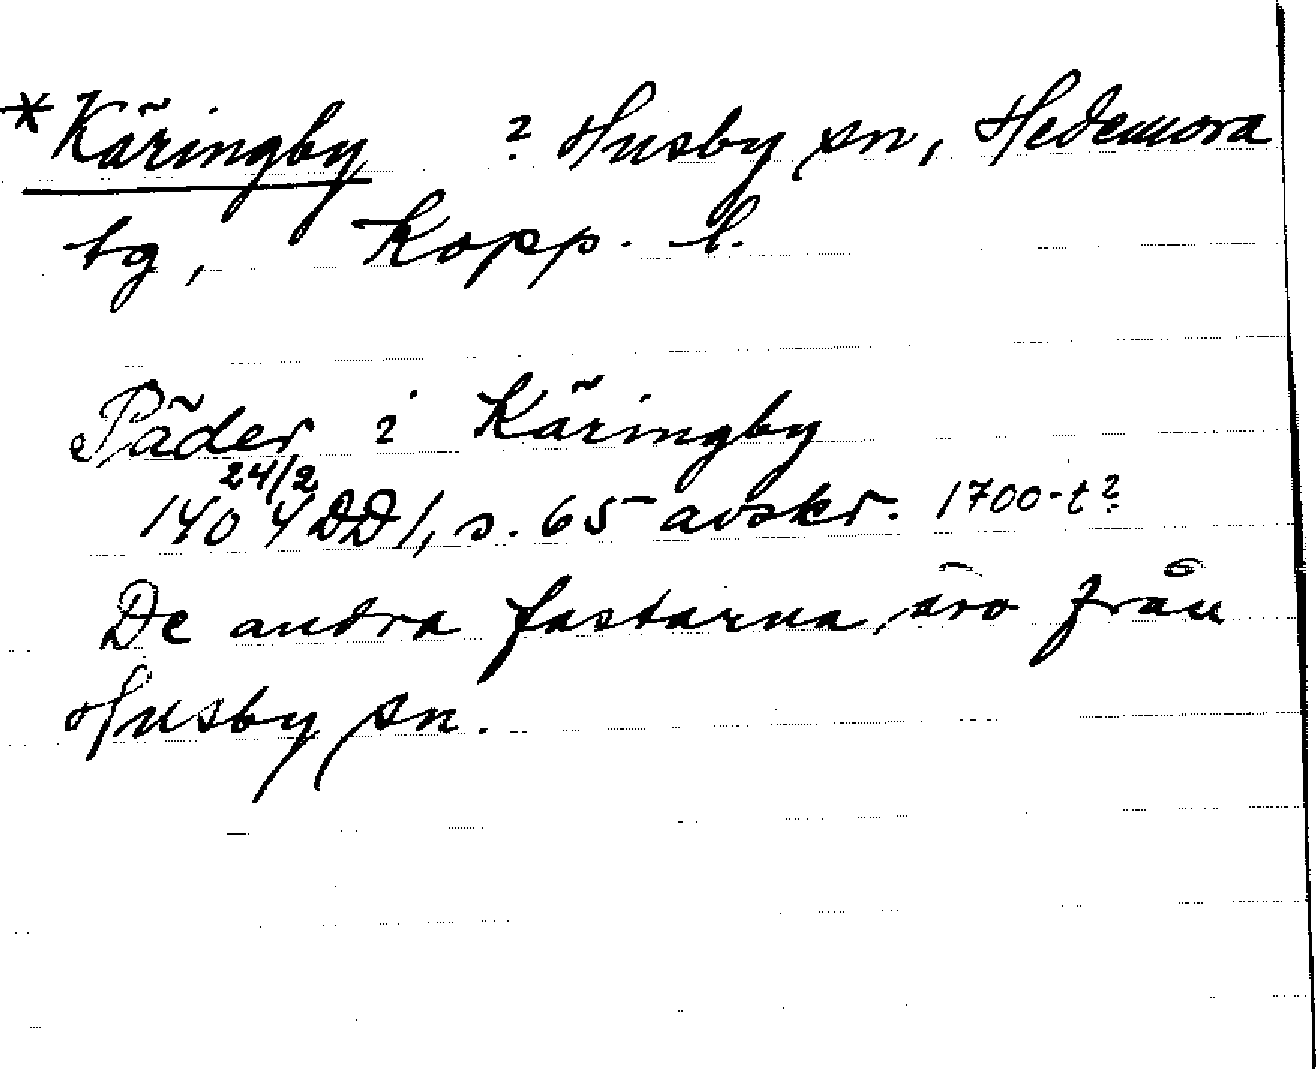 *Käringby ? Husby sn, Hedemora
tg, Kopp. l.
Päder i Käringby
24/2
1404 DD 1, s. 65 avskr. 1700-t?
De andra fastarna äro från
Husby sn.